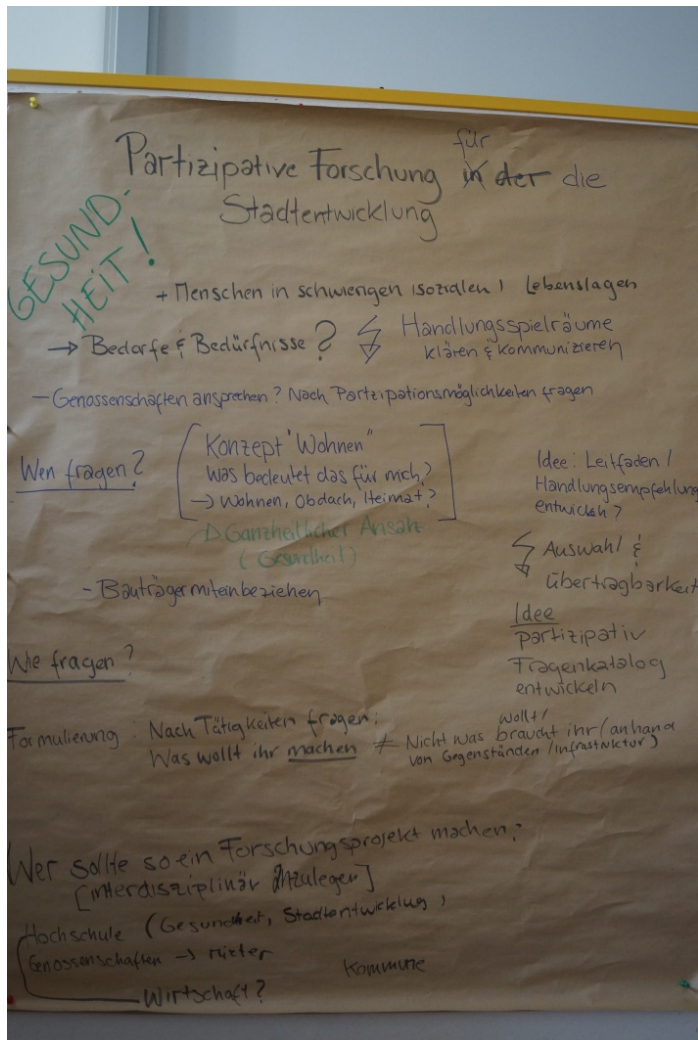 Partizipative Forschung für in der die
Stadtentwicklung
GESUND-
HEIT!
+ Menschen in schwierigen (sozialen) Lebenslagen
→ Bedarfe & Bedürfnisse?
Handlungsspielräume
klären & kommunizieren
- Genossenschaften ansprechen? Nach Partizipationsmöglichkeiten fragen
Wen fragen?
Konzept "Wohnen"
Was bedeutet das für mich?
→ Wohnen, Obdach, Heimat?
Ganzheitlicher Ansatz
(Gesundheit)
- Bauträger miteinbeziehen
Idee: Leitfaden /
Handlungsempfehlung
entwickeln?
Auswahl &
Übertragbarkeit
Idee
partizipativ
Fragenkatalog
entwickeln
Wie fragen?
Formulierung: Nach Tätigkeiten fragen:
Was wollt ihr machen ≠
wollt/
Nicht was braucht ihr (anhand
von Gegenständen / Infrastruktur)
Wer sollte so ein Forschungsprojekt machen?
[interdisziplinär anzulegen]
Hochschule (Gesundheit, Stadtentwicklung)
Genossenschaften → Mieter
Kommune
Wirtschaft?